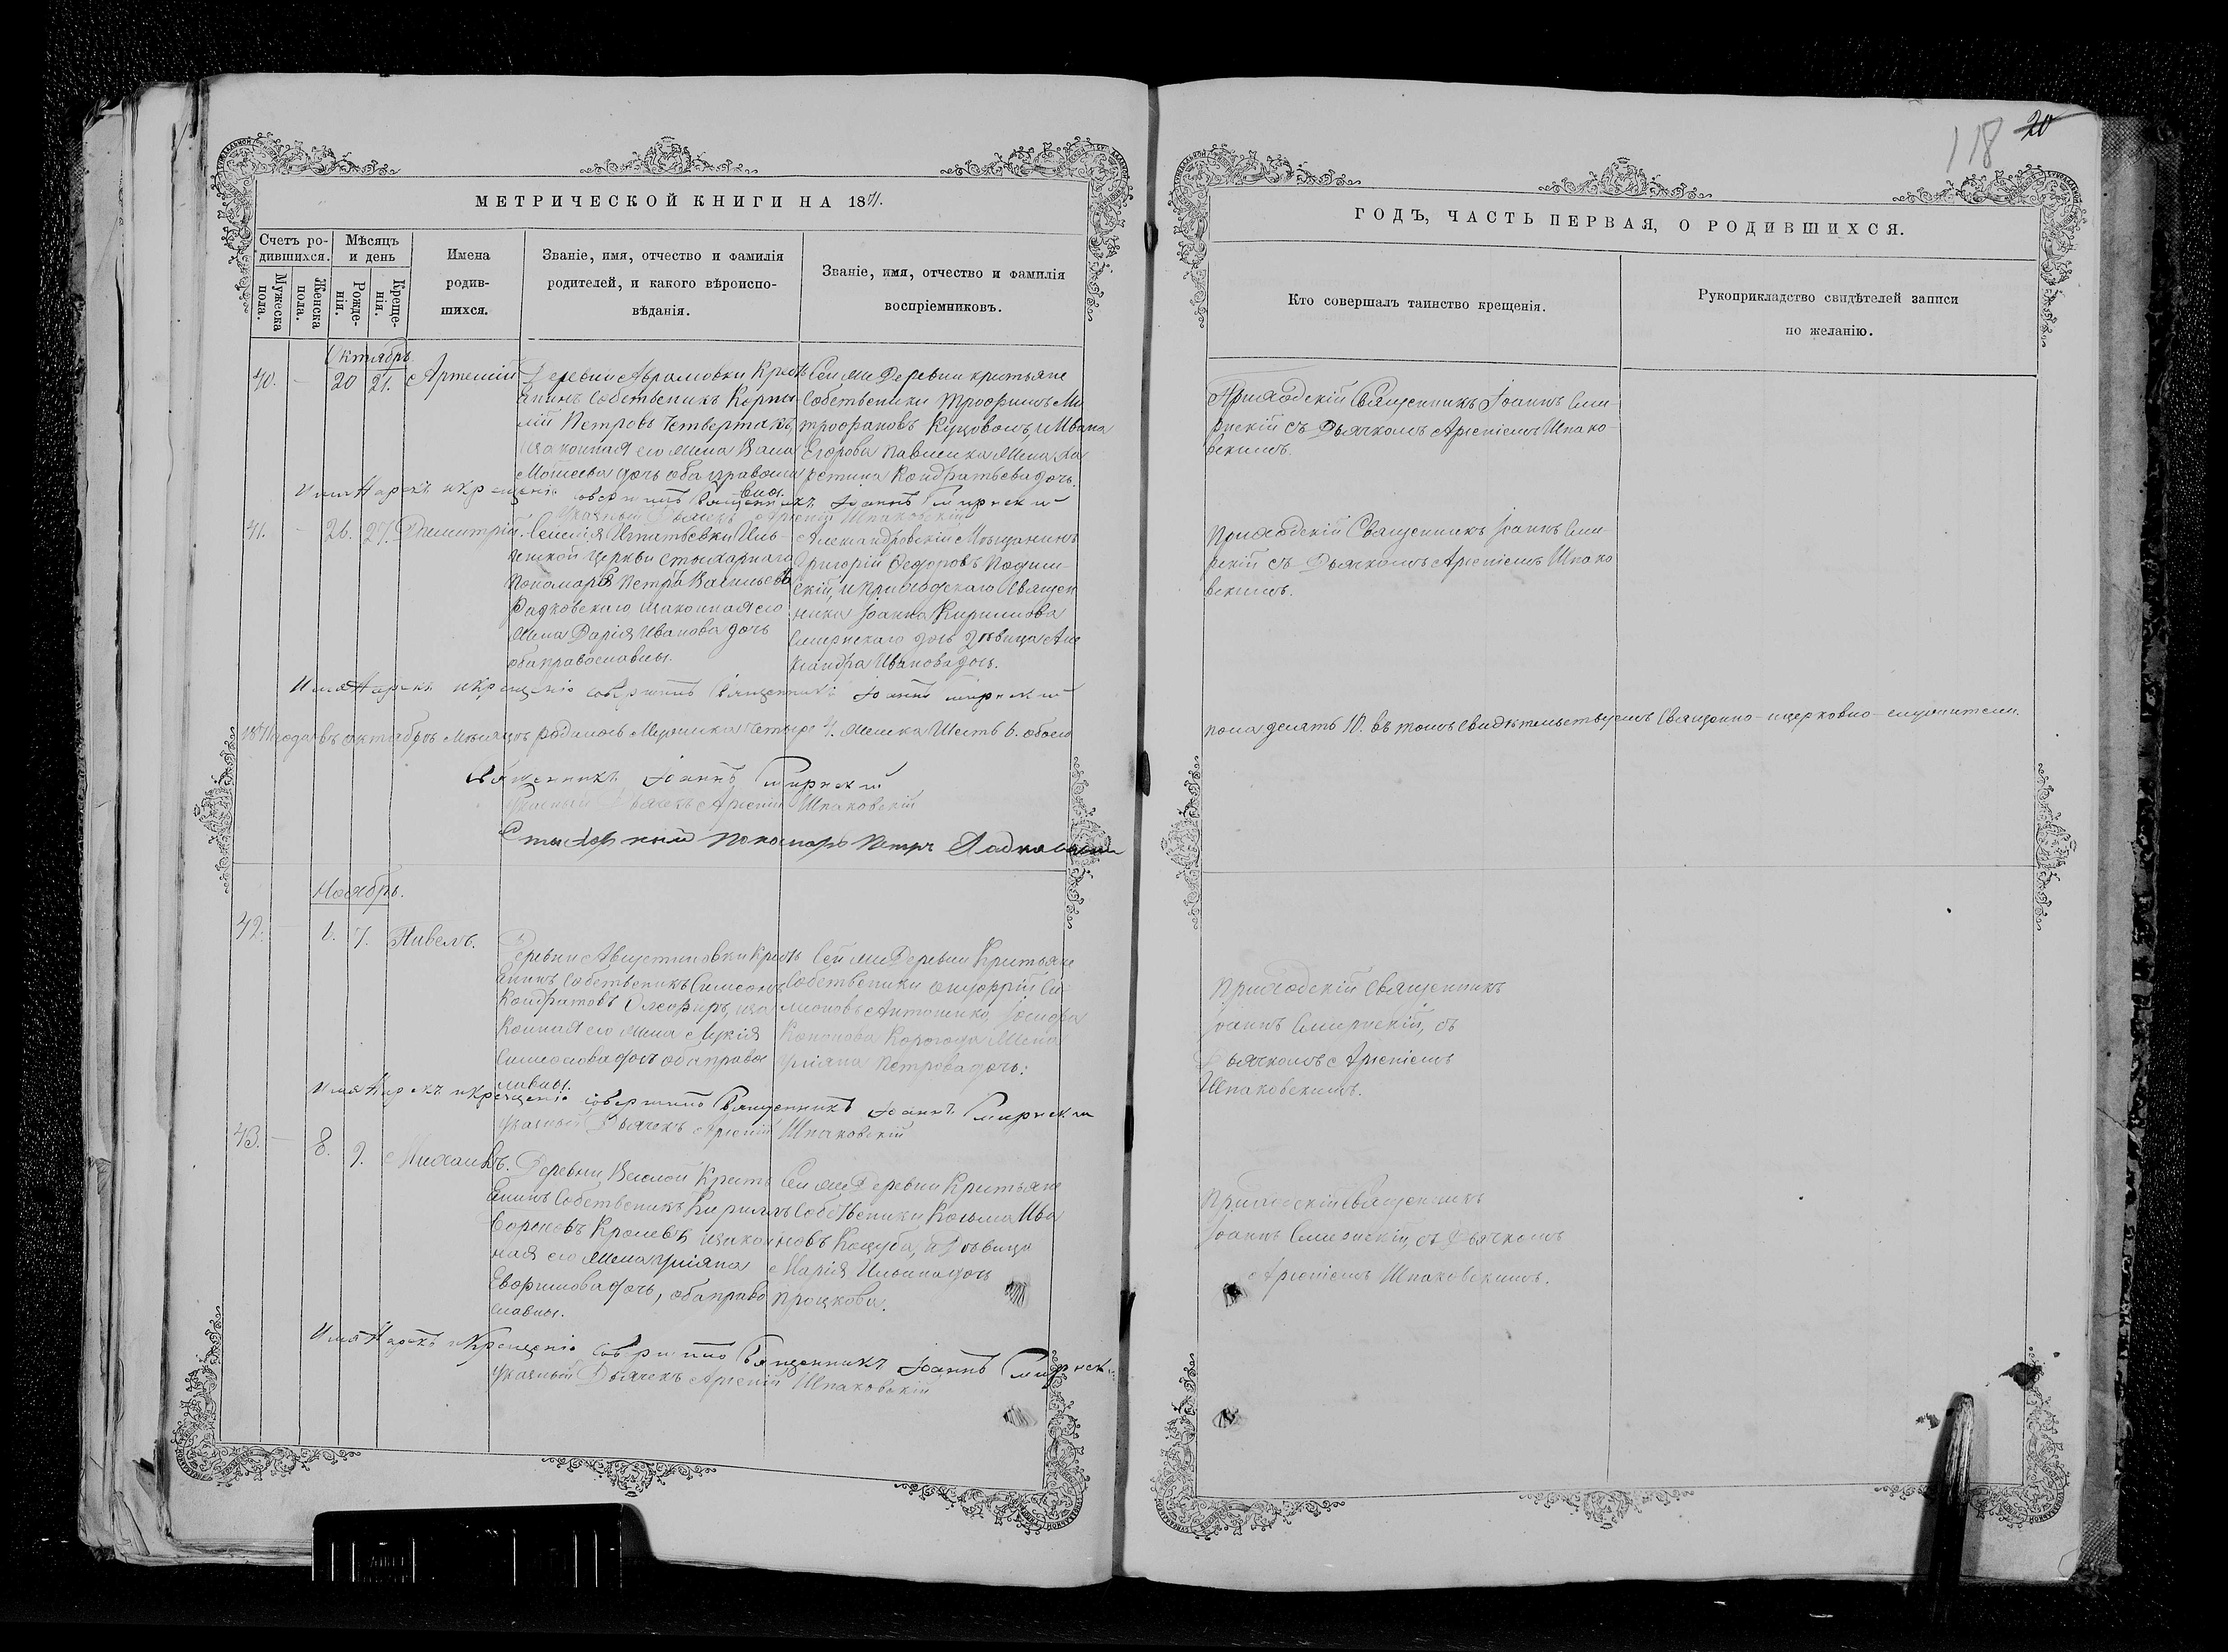 118 20
МЕТРИЧЕСКОЙ КНИГИ НА 1871.
ГОДЪ, ЧАСТЬ ПЕРВАЯ, О РОДИВШИХСЯ.
Счетъ ро-
дившихся.
Мужеска пола.
Женска пола.
Мѣсяцъ
и день
Рожде-
нія.
Креще-
нія.
Имена
родив-
шихся.
Званіе, имя, отчество и фамилія
родителей, и какого вѣроиспо-
вѣданія.
Званіе, имя, отчество и фамилія
воспріемниковъ.
Кто совершалъ таинство крещенія.
Рукоприкладство свидѣтелей записи
по желанію.
Октябрь
40. - 20 21. Артемій
Деревни Аврамовки Крестъ
янинъ Собственикъ Корни-
лій Петровъ Четвертакъ,
законная его жена
Моисеева дочь оба правосла
вны.
Сей же Деревни крестьяне
Собственики Трофимъ Ми
трофановъ Куцоволъ, и Ивана
Егорова Павленка жена Ха
ретина Кондратьева дочь.
Приходскій Священникъ Іоаннъ Сми
рнскій съ Дьячкомъ Арсеніемъ Шпако-
вскимъ.
Имя Нарекъ и крещеніе совершилъ Священникъ Іоаннъ Смирнскій
Указный Дьячекъ Арсеній Шпаковскій
41. - 26. 27. Димитрій.
Селенія Игнатьевки Иль-
инской Церкви Стихарнаго
Пономаря Петра Васильева
Радковскаго законная его
жена Дарія Иванова дочь
оба православны.
Александровскій Мѣщанинъ
Григорій Федоровъ
скій, и Приходскаго Священ
ника Іоанна Кириллова
Смирнскаго дочь Дѣвица Але
ксандра Иванова дочь.
Приходскій Священникъ Іоаннъ Сми
рнскій съ Дьячкомъ Арсеніемъ Шпако
вскимъ.
Имя Нарекъ и Крещеніе совершилъ Священникъ Іоаннъ Смирнскій
1871 года въ октябрѣ мѣсяцѣ родилось Мужеска четыре 4. женска Шесть 6. обоего
пола десять 10. въ томъ свидѣтельствуемъ Священно-и церковно-служители.
Священникъ Іоаннъ Смирнскій
Указный Дьячекъ Арсеній Шпаковскій
Стихарный пономарь Петръ Радковскій
Ноябрь.
42. - 1. 7. Павелъ.
Деревни Августиновки Крестъ
янинъ Собственикъ Симеонъ
Кондратовъ за
конная его жена Лукія
Симеонова дочь оба правос
лавны.
Сей же Деревни Крестьяне
Собственики Онуфрій Си
меоновъ Антоненко,
Кононова жена
Уліяна Петрова дочь:
Приходскій Священникъ
Іоаннъ Смирнскій, съ
Дьячкомъ Арсеніемъ
Шпаковскимъ.
Имя Нарекъ и крещеніе совершилъ Священникъ Іоаннъ Смирнскій
указный Дьячекъ Арсеній Шпаковскій
43. - 8. 9. Михаилъ.
Деревни Веселой Крестъ
янинъ Собственикъ Кириллъ
законная
его жена Уліяна
Евфимова дочь, оба право
славны.
Сей же Деревни Крестьяне
Собственики Косьма Ива
новъ Коцуба, и Дѣвица
Марія Ильина дочь
Процкова.
Приходскій Священникъ
Іоаннъ Смирнскій, съ Дьячкомъ
Арсеніемъ Шпаковскимъ.
Имя Нарекъ и Крещеніе совершилъ Священникъ Іоаннъ Смирнскій
указный Дьячекъ Арсеній Шпаковскій